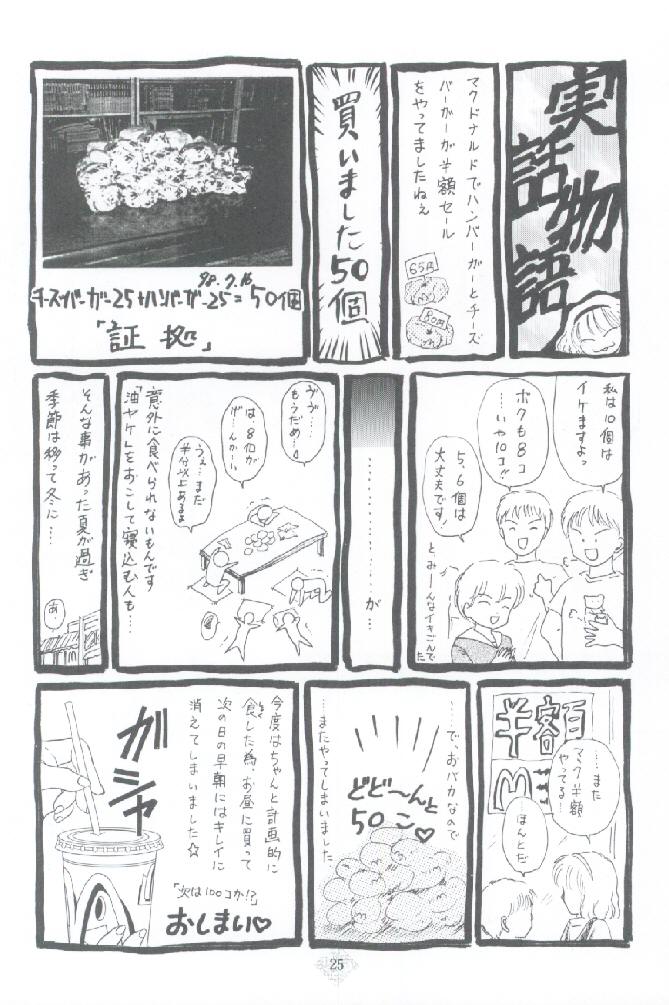 実話物語
マクドナルドでハンバーガーとチーズ
バーガーが半額セール
をやってましたねぇ
65円
80円
買いました50個
98.7.16
チーズバーガー25+ハンバーガー25=50個
「証拠」
私は10個は
イケますよっ
ボクも8コ
…いや10コ!!
5,6個は
大丈夫です!
とみーんなイキごんで
た
…………が…
ヴヴ…
もうだめ…
は8個が
げ…んかい
うぇ…まだ
半分以上あるよ
意外に食べられないもんです
「油ヤケ」をおこして寝込む人も…
そんな事があった夏が過ぎ
季節は移って冬に…
あ
半額
M
……また
マック半額
やってる…
ほんとだ
……で、おバカなので
どど〜んと
50こ♡
…またやってしまいました
今度はちゃんと計画的に
食した為、お昼に買って
次の日の早朝にはキレイに
消えてしまいました☆
「次は100コか!?」
おしまい♡
ガシャ
25